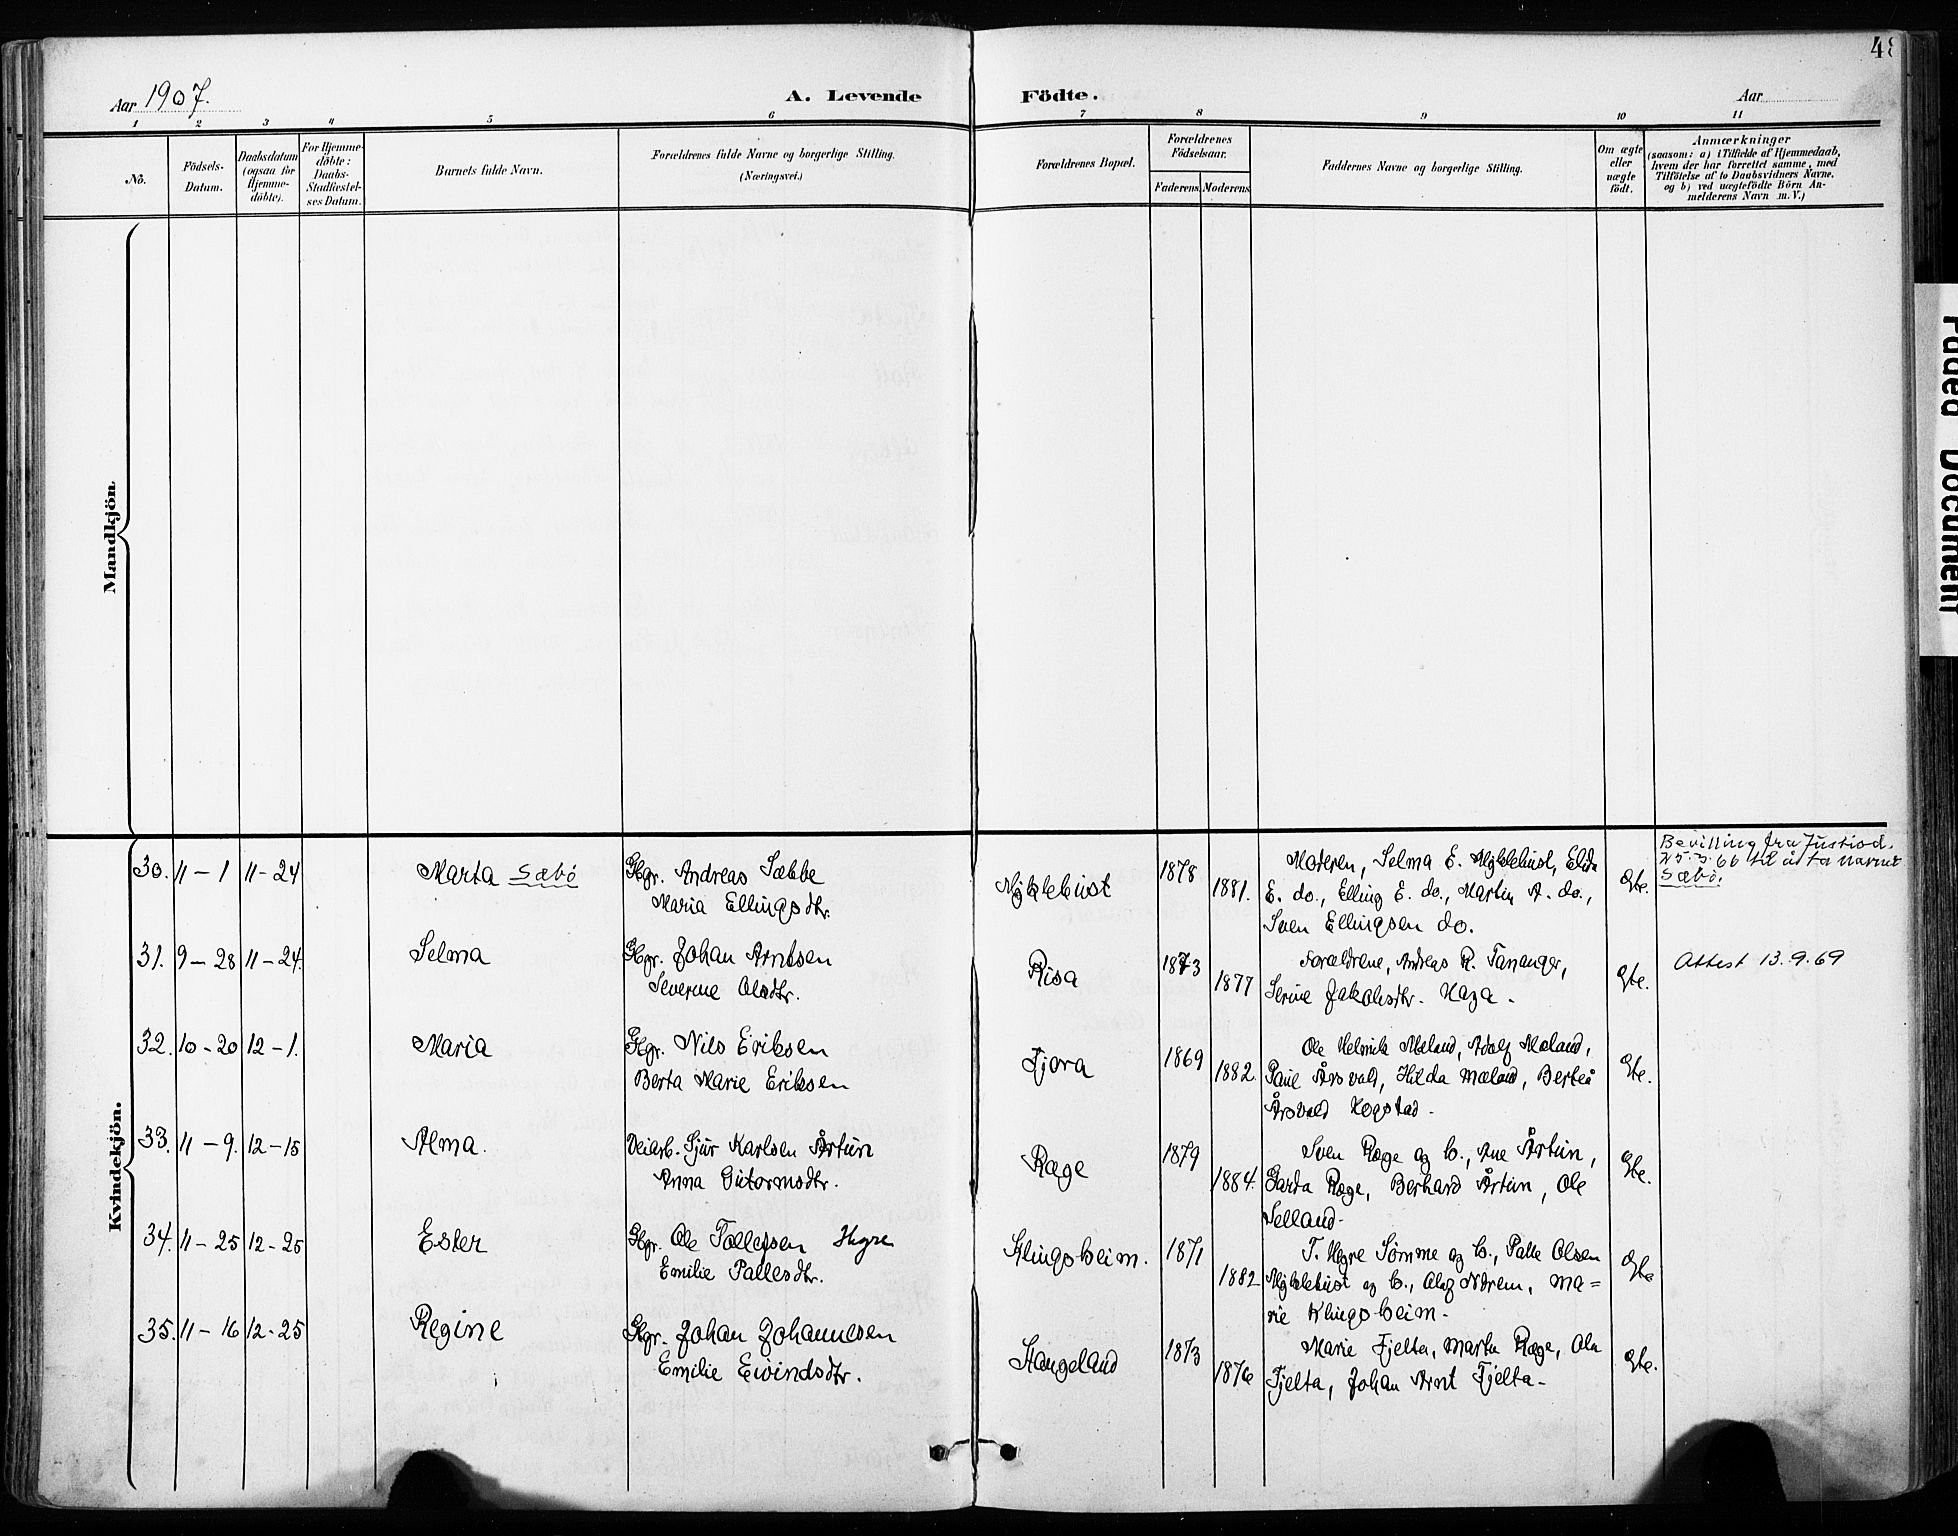 Aar 1907.
A. Levende Födte.
Aar
48
1 2 3 4 5 6 7 8 9 10 11
No.
Födsels-Datum.
Daabsdatum (ogsaa for Hjemme-döbte).
For Hjemme-döbte: Daabs-Stadfæstel-ses Datum.
Barnets fulde Navn.
Forældrenes fulde Navne og borgerlige Stilling.
(Næringsvei.)
Forældrenes Bopæl.
Forældrenes Födselsaar.
Faderens Moderens
Faddernes Navne og borgerlige Stilling.
Om ægte eller uægte födt.
Anmærkninger
(saasom: a) i Tilfælde af Hjemmedaab,
hvem der har forrettet samme, med
Tilföielse af to Daabsvidners Navne.
og b) ved uægtefödte Börn An-
melderens Navn m. V.)
Mandkjön.
Kvindekjön.
30. 11-1 11-24 Marta Sæbö Gbr. Andreas Sæbbe
Maria Ellingsdtr.
Myklebust 1878 1881.
Moderen, Selma E. Myklebust, Elida
E. do., Elling E. do., Martin A. do.,
Sven Ellingsen do.
Ægte.
Bevilling fra Justisd.
25.3.66 til å ta navnet
Sæbö.
31. 9-28 11-24. Selma Gbr. Johan Arntsen
Severine Olsdtr.
Risa 1873 1877
Forældrene, Andreas R. Tananger,
Serine Jakobsdtr. Haga.
Ægte.
Attest 13.9.69
32. 10-20 12-1. Maria Gbr. Nils Eriksen
Berta Marie Eriksen
Fjora 1869 1882.
Ole Helmik Meland, Adolf Meland,
Årsvold, Hilda Mæland,
Årsvold Hogstad.
Ægte.
33. 11-9. 12-15 Alma. Veiarb. Sjur Karlsen Årtun
Anna Gutormsdtr.
Ræge 1879 1884.
Sven Ræge og h., Ane Årtun,
Ræge, Berhard Årtun, Ole
Selland.
Ægte.
34. 11-25 12-25 Ester Gbr. Ole Tollefsen Hegre
Emilie Pallesdtr.
Klingsheim. 1871 1882
T. Hegre Sømme og h., Palle Olsen
Myklebust og h., Olaf Nærem, Ma=
rie Klingsheim.
Ægte
35. 11-16 12-25 Regine Gbr. Johan Johannesen
Emilie Eivindsdtr.
Stangeland 1873 1876
Marie Fjelta, Marta Ræge, Ole
Fjelta, Johan Arnt Fjelta.
Ægte.
Faded Document